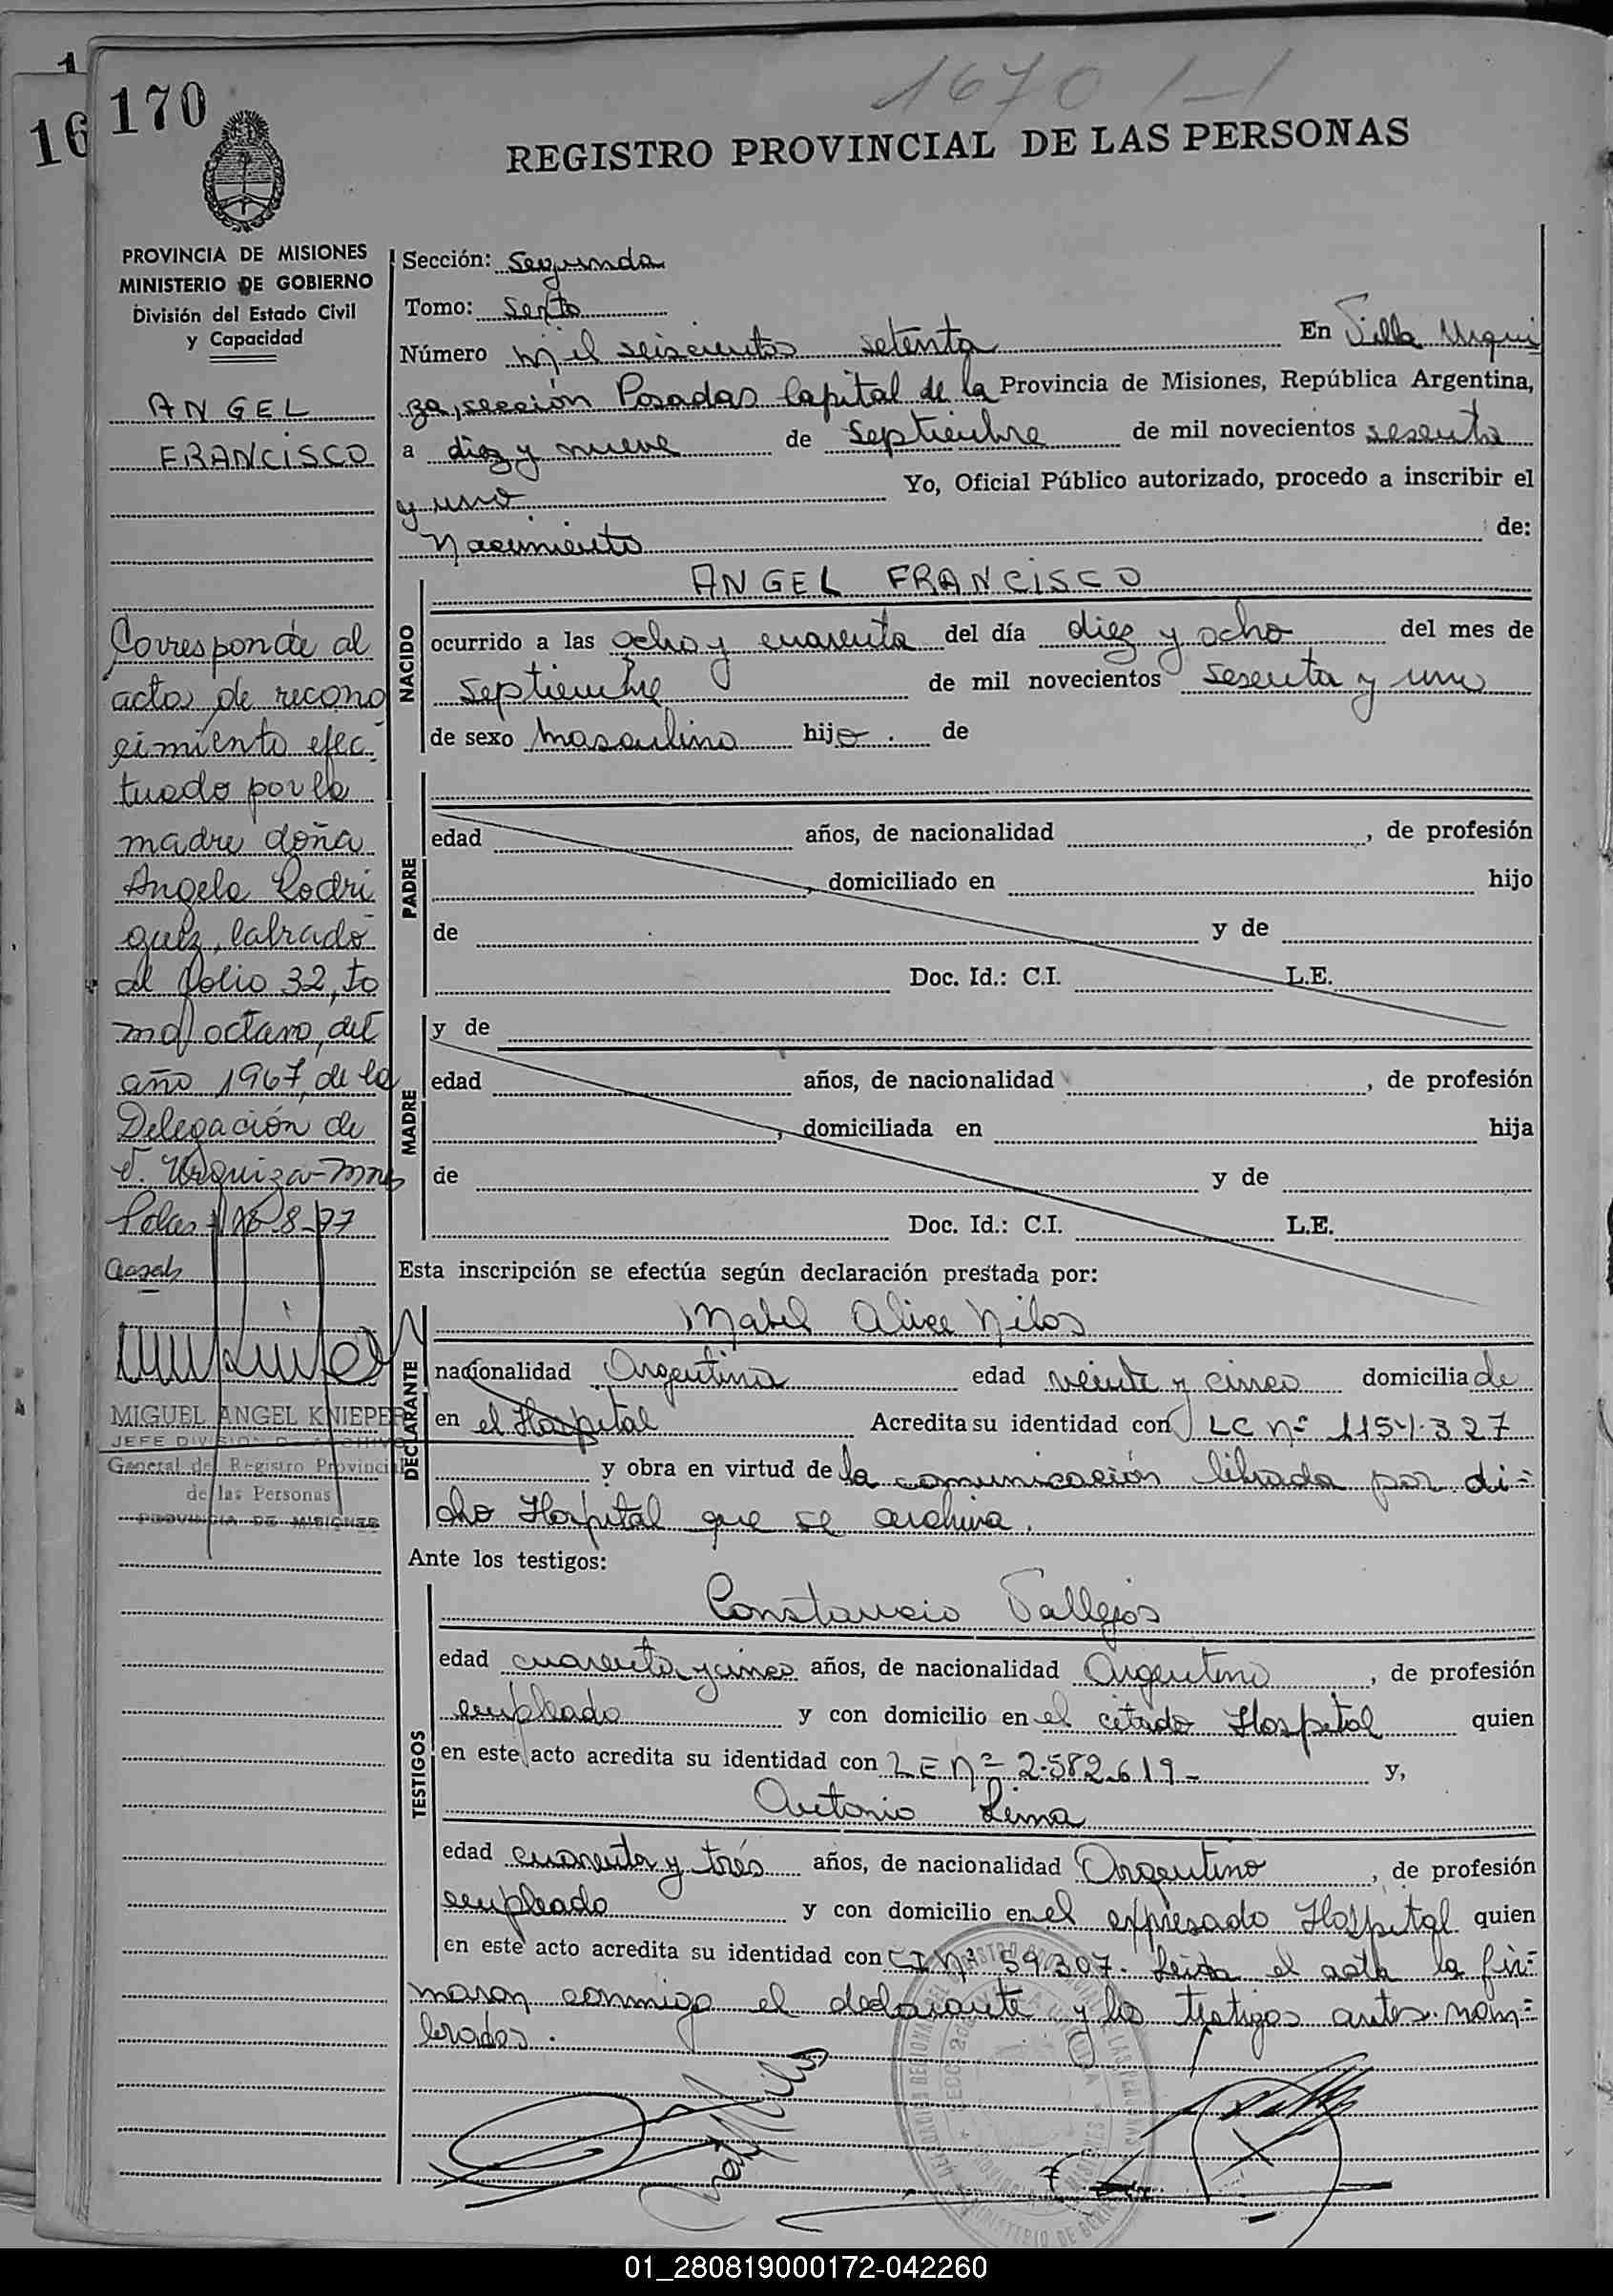 1670
170
16
REGISTRO PROVINCIAL DE LAS PERSONAS
PROVINCIA DE MISIONES
MINISTERIO DE GOBIERNO
División del Estado Civil
y Capacidad
ANGEL
FRANCISCO
Corresponde al
acta de recono
cimiento efec
tuado por la
madre doña
Angela Rodri
guez, labrado
al folio 32, to
mo octavo, del
año 1967, de la
Delegación de
V. Urquiza-Mnes
8-77
MIGUEL ANGEL KNIEPER
JEFE DIVISION DE ARCHIVO
General del Registro Provincial
de las Personas
PROVINCIA DE MISIONES
Sección: Segunda
Tomo: Sexto
Número mil seiscientos setenta En Villa Urqui
za, sección Posadas Capital de la Provincia de Misiones, República Argentina,
a diez y nueve de Septiembre de mil novecientos sesenta
y uno Yo, Oficial Público autorizado, procedo a inscribir el
Nacimiento de:
NACIDO
ANGEL FRANCISCO
ocurrido a las ocho y cuarenta del día diez y ocho del mes de
Septiembre de mil novecientos sesenta y uno
de sexo masculino hijo de
PADRE
edad años, de nacionalidad , de profesión
, domiciliado en hijo
de y de
Doc. Id.: C.I. L.E.
MADRE
y de
edad años, de nacionalidad , de profesión
, domiciliada en hija
de y de
Doc. Id.: C.I. L.E.
Esta inscripción se efectúa según declaración prestada por:
DECLARANTE
Mabel Alice Nilos
nacionalidad Argentina edad veinte y cinco domiciliade
en el Hospital Acredita su identidad con LC nº 1154.327
y obra en virtud de la comunicación librada por di=
cho Hospital que se archiva.
Ante los testigos:
TESTIGOS
Constancio Vallejos
edad cuarenta y cinco años, de nacionalidad Argentino , de profesión
empleado y con domicilio en el citado Hospital quien
en este acto acredita su identidad con LE nº 2.582.619- y,
Antonio Lima
edad cuarenta y trés años, de nacionalidad Argentino , de profesión
empleado y con domicilio en el expresado Hospital quien
en este acto acredita su identidad con CI Nº 59.307. Leida el acta la fir=
maron conmigo el declarante y los testigos antes nom=
brados.
01_280819000172-042260